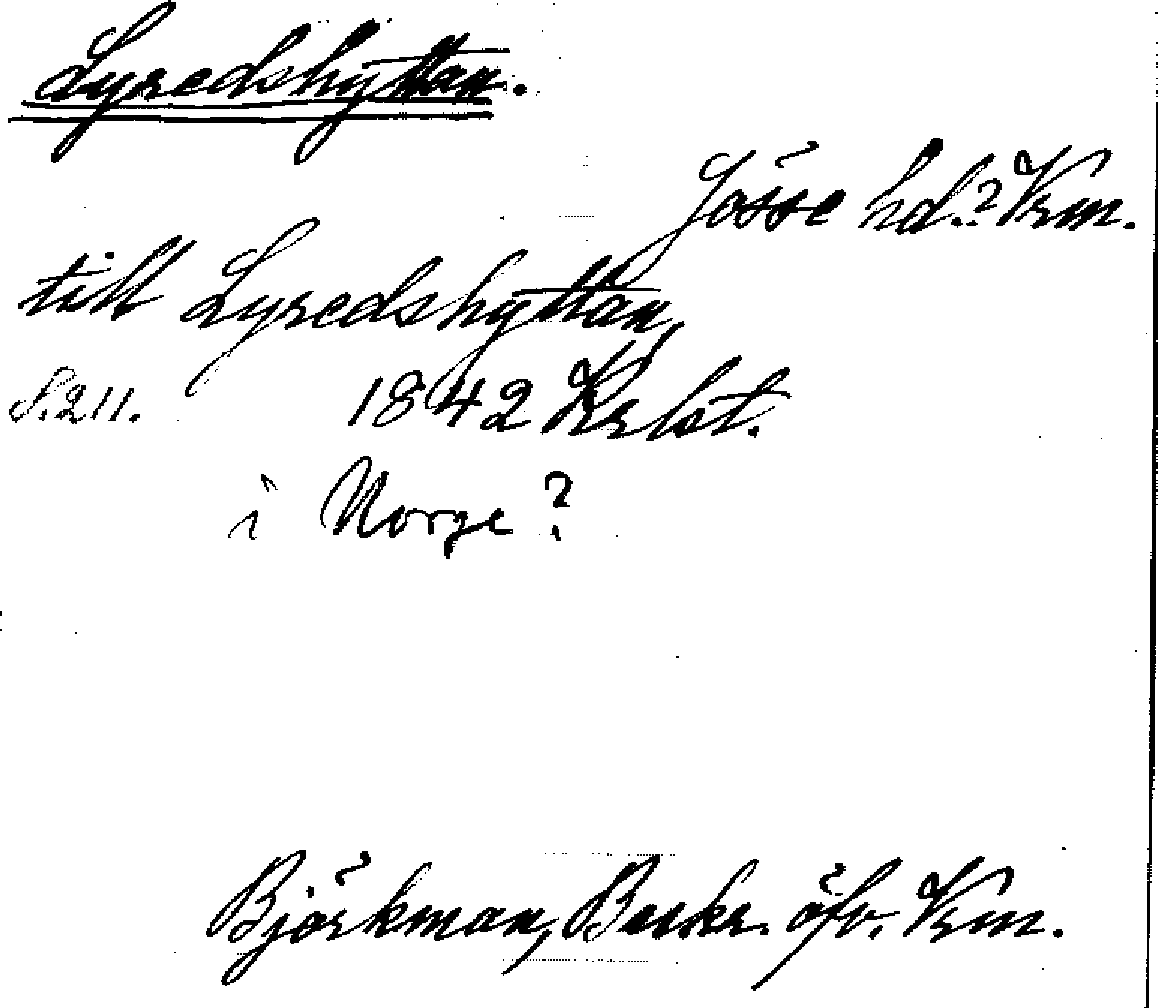 Lyredshyttan.
Jösse hd.? Vrm.
till Lyredshyttan,
S. 211. 1842 Krlst.
i Norge?
Björkman, Beskr. öfv. Vrm.